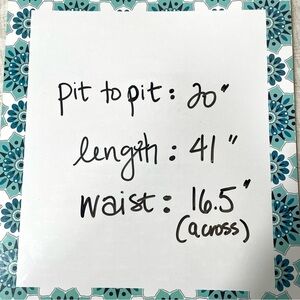 pit to pit: 20"
length: 41"
waist: 16.5"
(across)